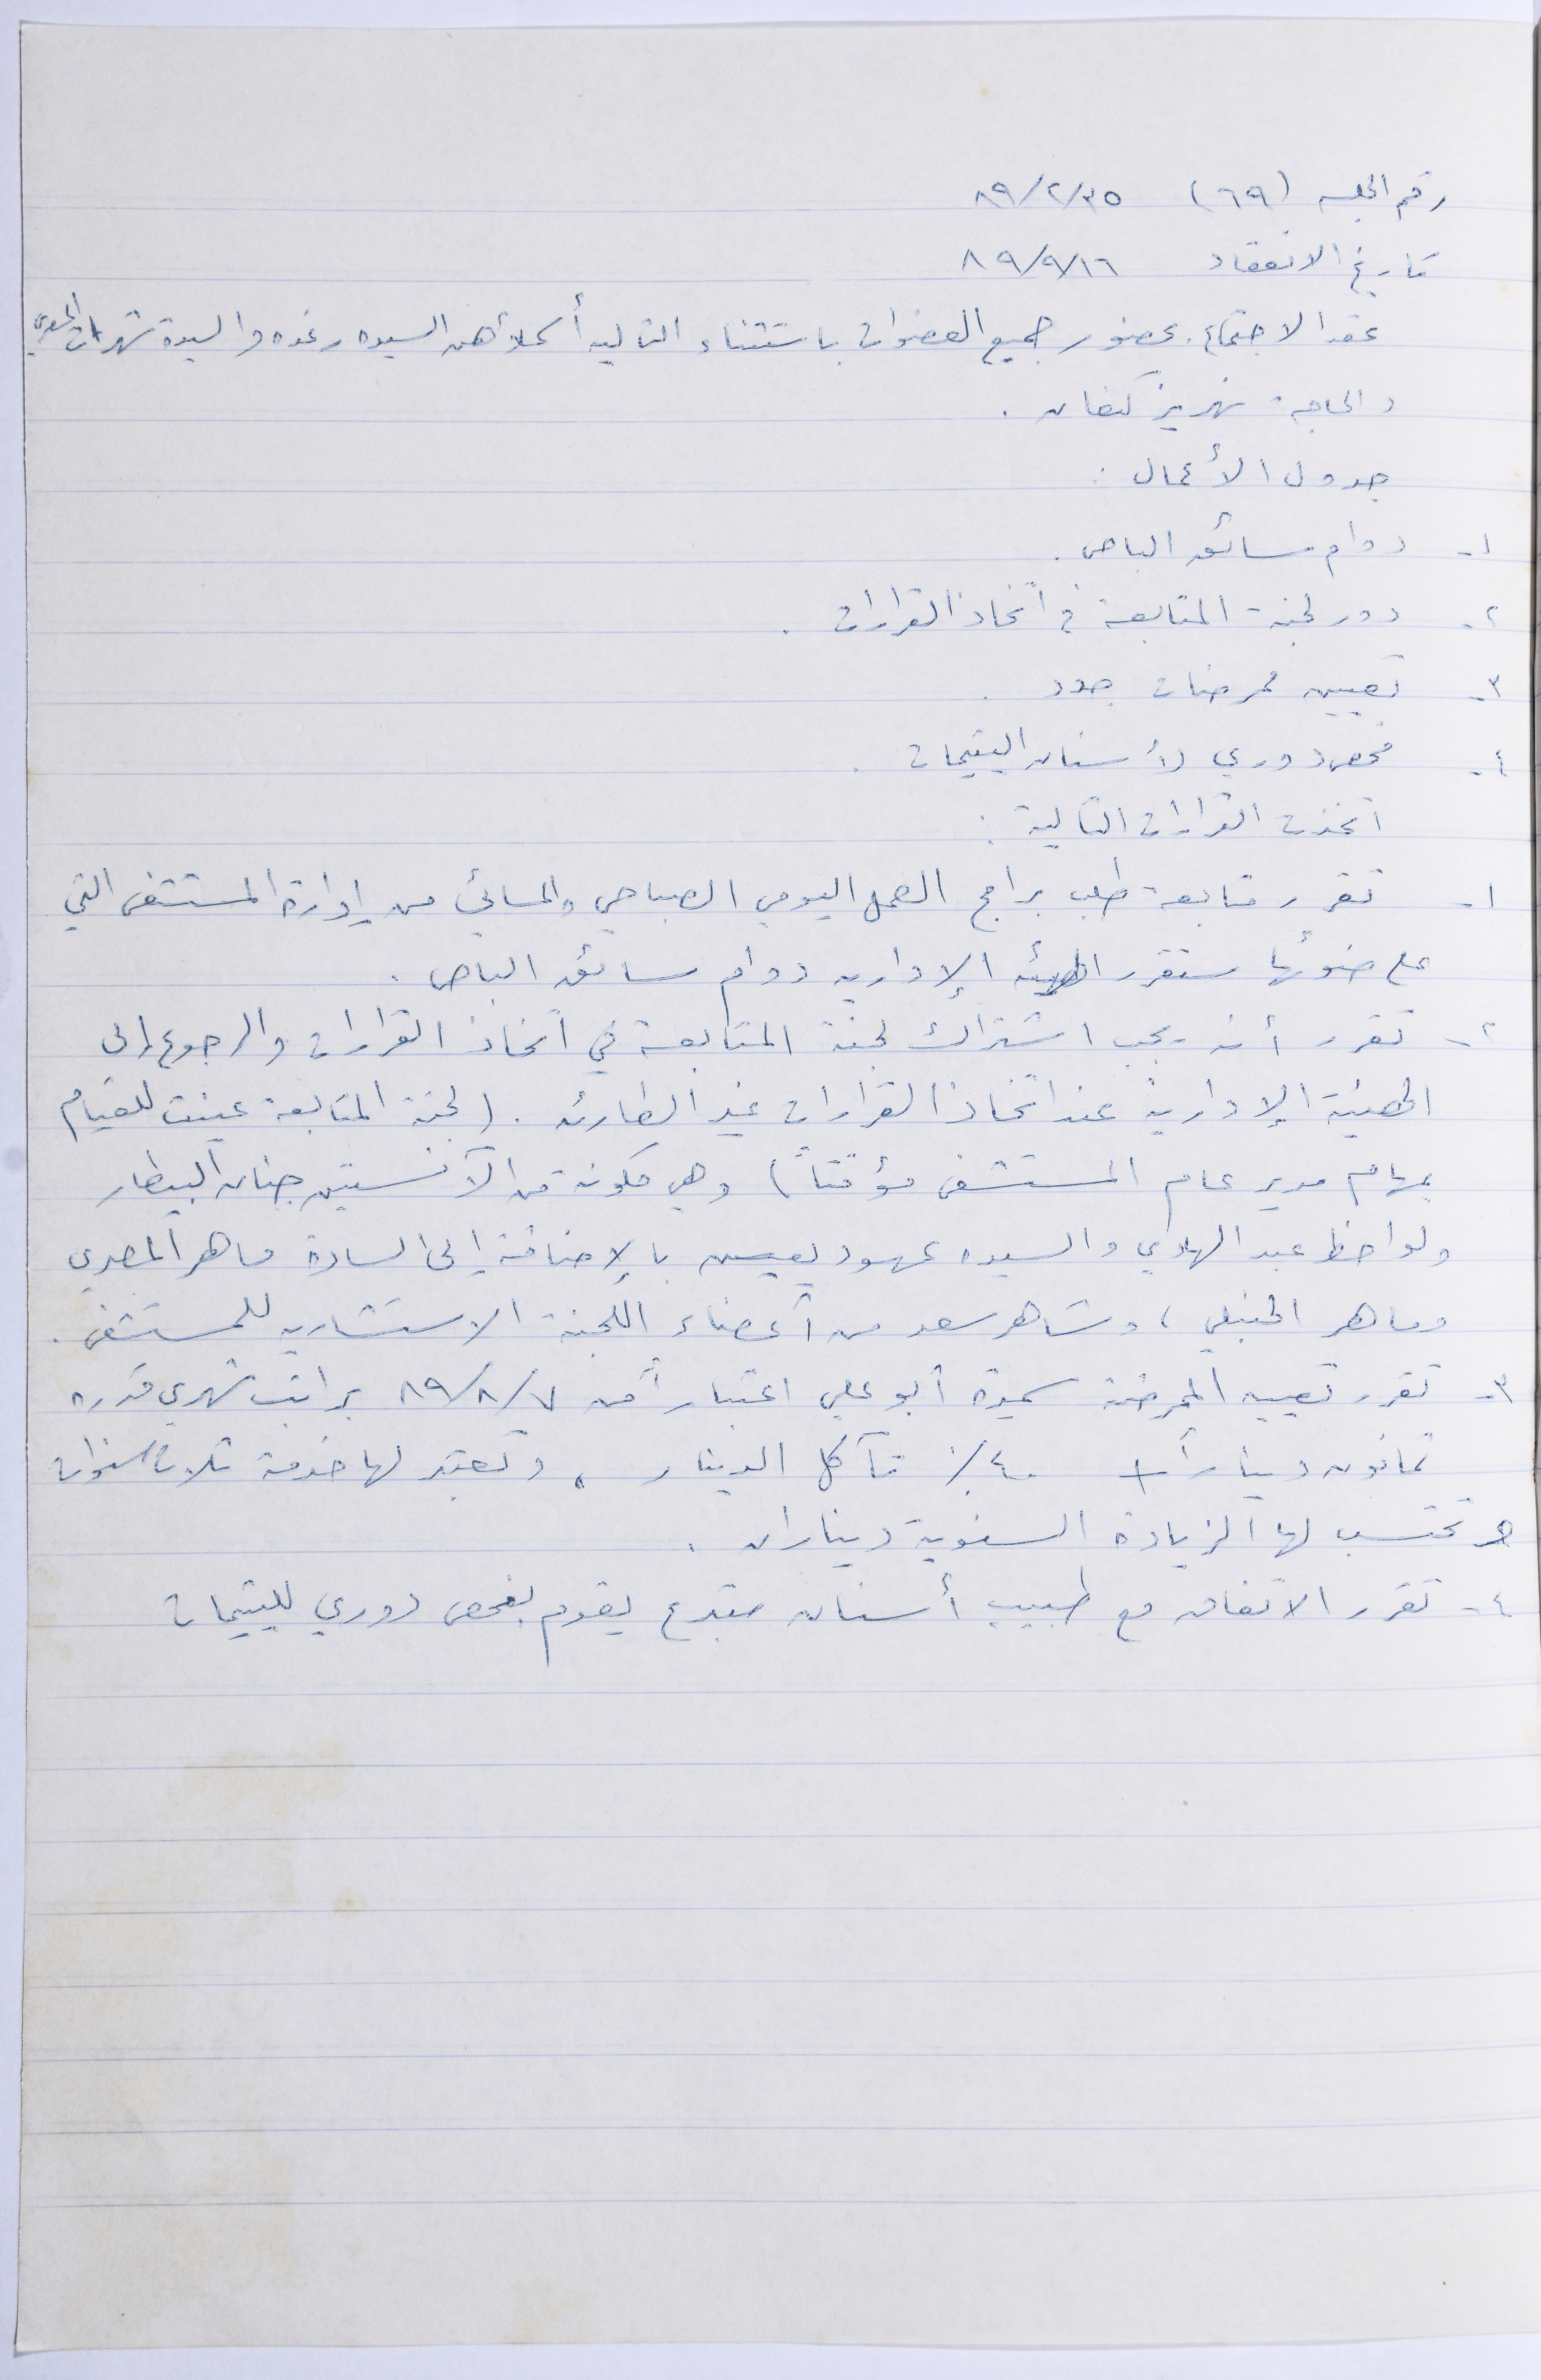 رقم الجلسه (٦٩) ٨٩/٢/٣٥
تاريخ الانعقاد ٨٩/٩/١٦
عقد الاجتماع بحضور جميع العضوات باستثناء التاليه أسماؤهن السيده رغده والسيدة شهرت المصري
والحاجة نهريز كنعان .
جدول الأعمال :
١- دوام سائق الباص .
٢- دور لجنة المتابعة في اتخاذ القرارات .
٣- تعيين ممرضات جدد .
٤- فحص دوري لأسنان اليتيمات .
اتخذت القرارات التالية :
١- تقرر متابعة طلب برامج العمل اليومي الصباحي والمسائي من إدارة المستشفى التي
على ضوئها ستقرر الهيئه الإداريه دوام سائق الباص .
٢- تقرر أنه يجب اشتراك لجنة المتابعة في اتخاذ القرارات والرجوع إلى
الهيئة الإدارية عند اتخاذ القرارات غير الطارئه . (لجنة المتابعة عينت للقيام
بمهام مدير عام المستشفى مؤقتاً) وهي مكونة من الآنستين جنان البيطار
ولواحظ عبد الهادي والسيده عهود يعيش بالإضافة إلى السادة ماهر المصري
وماهر الحنبلي ، وشاهر سعد من أعضاء اللجنة الاستشاريه للمستشفى .
٣- تقرر تعيين الممرضة سميرة أبو علي اعتباراً من ٨٩/٨/٧ براتب شهري قدره
ثمانون ديناراً + ٤٠٪ تآكل الدينار ، وتعتبر لها خدمة ثلاث سنوات
تحتسب لها الزيادة السنوية ديناران .
٤- تقرر الاتفاق مع طبيب أسنان متبرع يقوم بفحص دوري لليتيمات